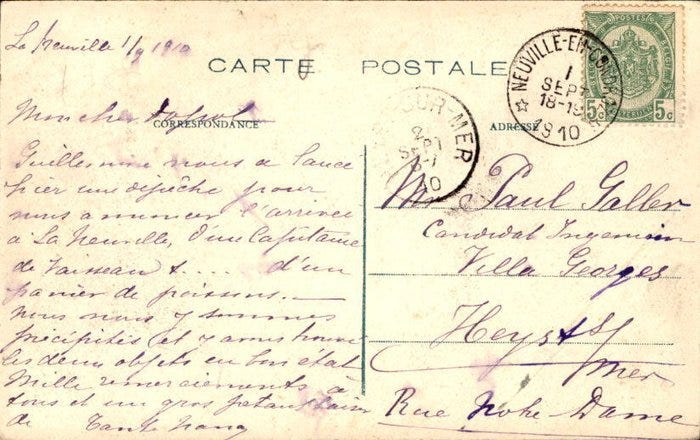 La Neuville 1/9 1910
CARTE POSTALE
CORRESPONDANCE
ADRESSE
NEUVILLE-EN-CONDROZ
1
SEPT
18-19
1910
SUR-MER
2
SEPT
10
POSTES
5c 5c
Mon cher
Guillemine nous a lancé
hier une dépêche pour
nous annoncer l'arrivée
à La Neuville, d'un Capitaine
de Vaisseau &.... d'un
panier de poissons.
Nous nous y sommes
précipités et y avons trouvé
les deux objets en bon état
Mille remerciements à
tous et un gros
de Tante
Paul Galler
Candidat Ingénieur
Villa Georges
Heyst s/
mer
Rue Notre-Dame